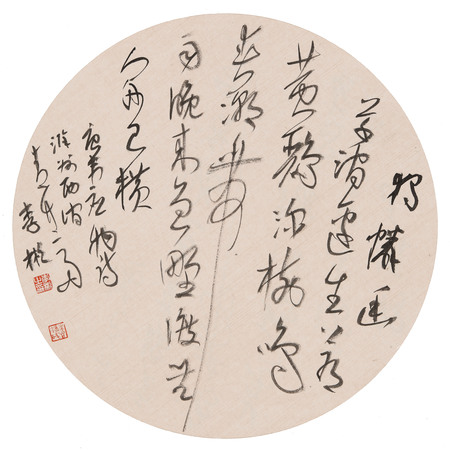 獨憐幽
草澗邊生上有
黃鸝深樹鳴
春潮帶
雨晚來急野渡無
人舟自橫
唐韋應物詩
滁州西澗